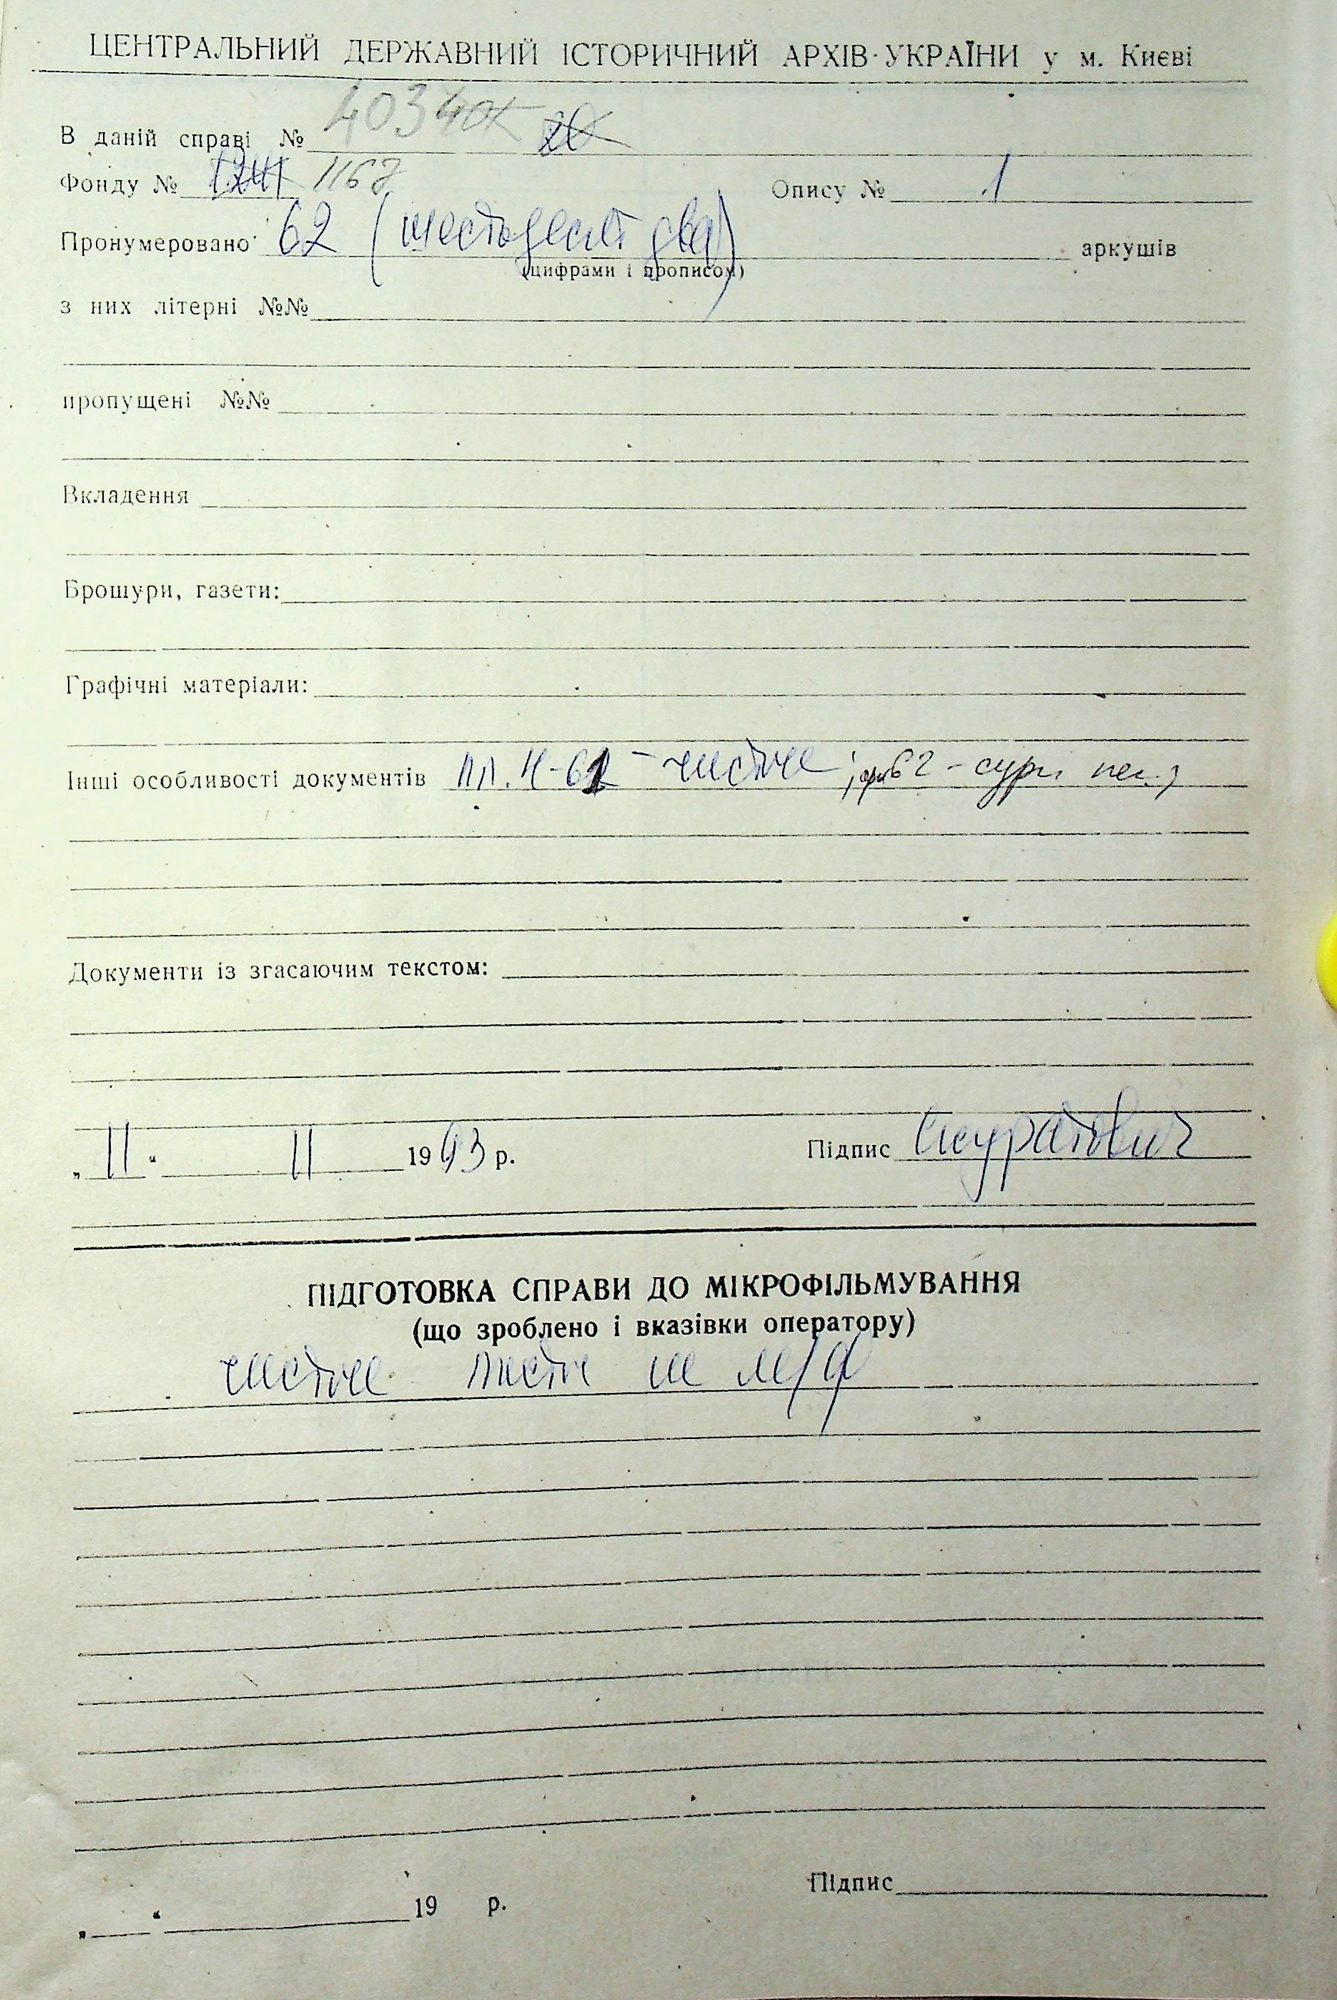 ЦЕНТРАЛЬНИЙ ДЕРЖАВНИЙ ІСТОРИЧНИЙ АРХІВ УКРАЇНИ у м. Києві
В даній справі №
Фонду № 1167 Опису № 1
Пронумеровано 62 (шестьдесят два) аркушів
(цифрами і прописом)
з них літерні №№
пропущені №№
Вкладення
Брошури, газети:
Графічні матеріали:
Інші особливості документів
Документи із згасаючим текстом:
„11“ 11 1993 р. Підпис
ПІДГОТОВКА СПРАВИ ДО МІКРОФІЛЬМУВАННЯ
(що зроблено і вказівки оператору)
чистые листы не м/ф
„ “ 19 р. Підпис